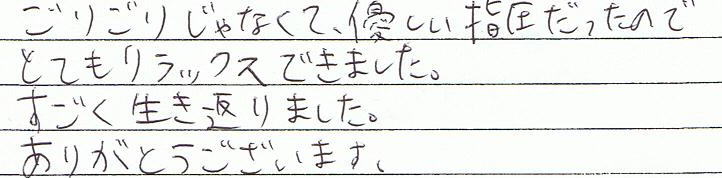 ごりごりじゃなくて、優しい指圧だったので
とてもリラックスできました。
すごく生き返りました。
ありがとうございます、